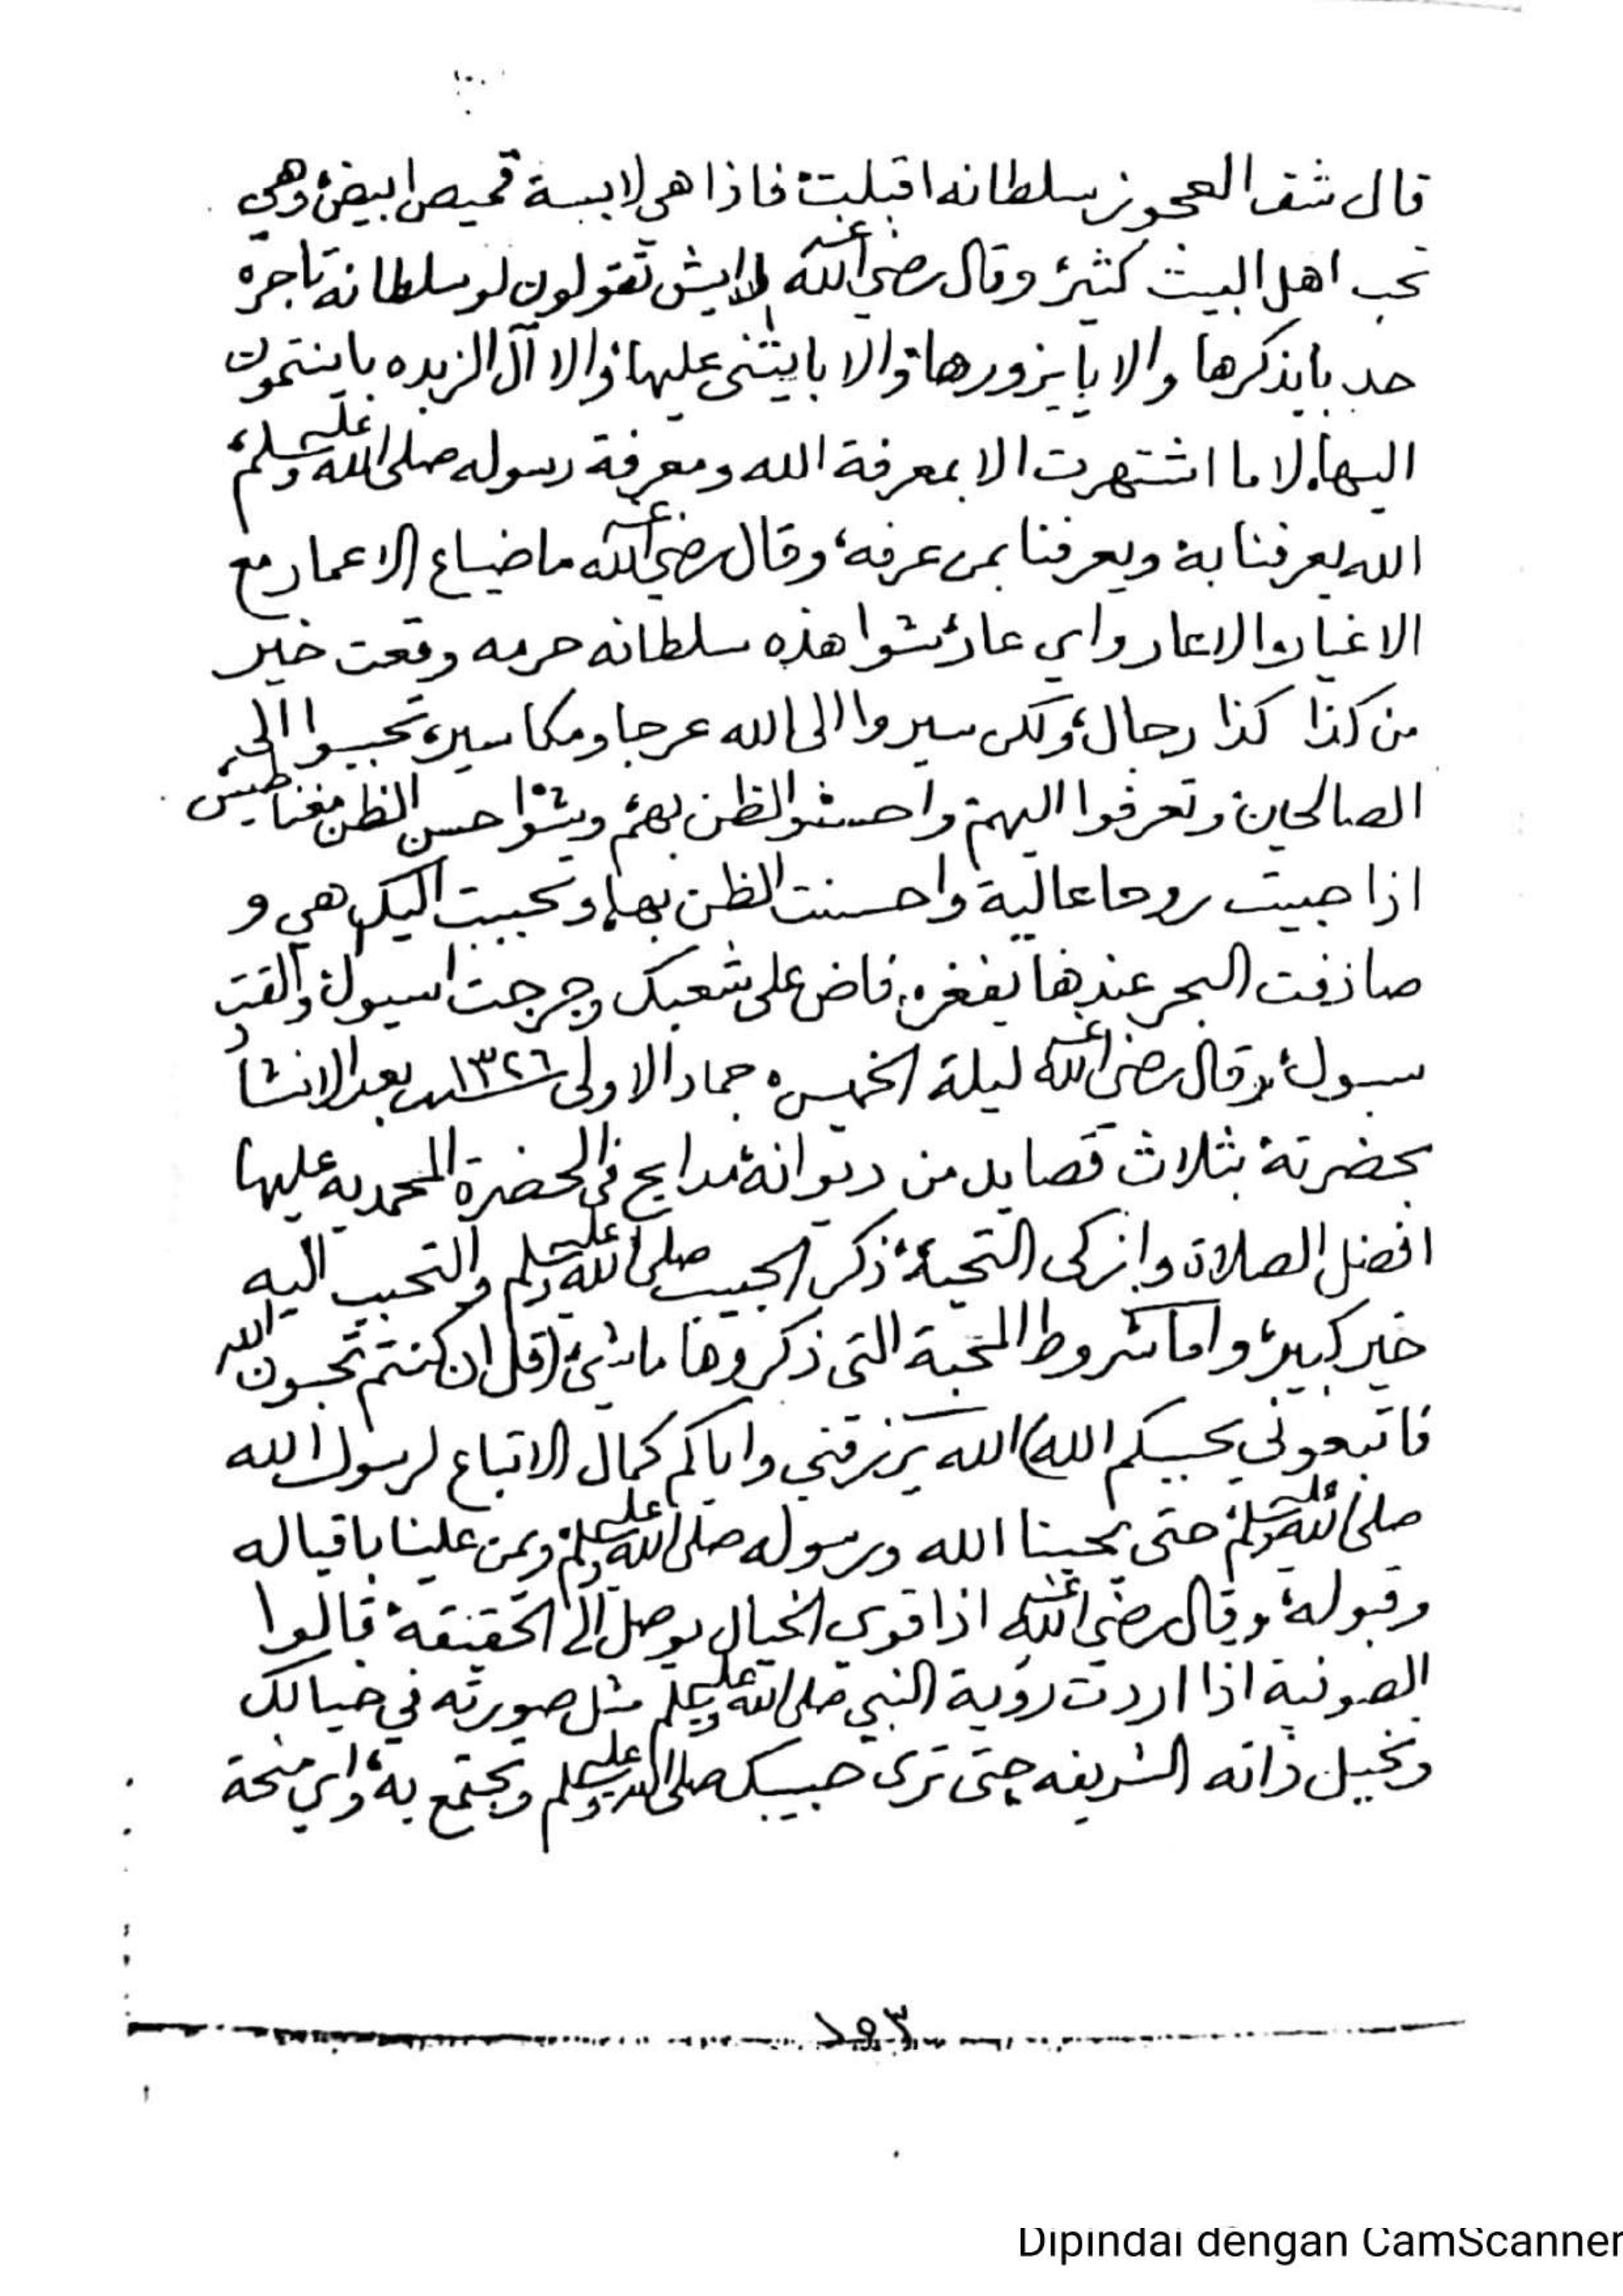 قال شف العجوز سلطانه اقبلت فاذا هي لابسة قميص ابيض وهي
تحب اهل البيت كثير وقال رضي الله عنه لا ايش تقولون لو سلطانه تاجره
حد بايذكرها والا بايزورها والا بايثني عليها والا آل الزبده باينتمون
اليها. لا ما اشتهرت الا بمعرفة الله ومعرفة رسوله صلى الله عليه وسلم
الله يعرفنا به ويعرفنا بمن عرفه، وقال رضي الله عنه ما ضياع الاعمار مع
الاغيار والاعار واي عار شوا هذه سلطانه حرمه وقعت خير
من كذا كذا رجال، ولكن سيروا الى الله عرجا ومكاسير، تحببوا الى
الصالحين وتعرفوا اليهم واحسنوا الظن بهم وشوا حسن الظن مغناطيس
اذا جيت روحا عالية واحسنت الظن بها، وتحببت اليك هي و
صادفت البحر عندها يفغر، فاض على شعبك وخرجت اسيول والقت
سبول، وقال رضي الله عنه ليلة الخميس ٥ جماد الاولى سنة ١٣٢٦ بعد الانشاد
بحضرته بثلاث قصايد من ديوانه مدايح في الحضرة المحمديه عليها
افضل الصلاة وازكى التحية، ذكر الحبيب صلى الله عليه وسلم والتحبب اليه
خير كبير، واما شروط المحبة التي ذكروها ما شي، (قل ان كنتم تحبون الله
فاتبعوني يحببكم الله) الله يرزقني واياكم كمال الاتباع لرسول الله
صلى الله عليه وسلم حتى يحبنا الله ورسوله صلى الله عليه وسلم ويمن علينا باقباله
وقبوله، وقال رضي الله عنه اذا قوي الخيال يوصل الى الحقيقة، قالوا
الصوفية اذا اردت رؤية النبي صلى الله عليه وسلم مثل صورته في خيالك
وتخيل ذاته الشريفه حتى ترى حبيبك صلى الله عليه وسلم وتجتمع به، واي منحة